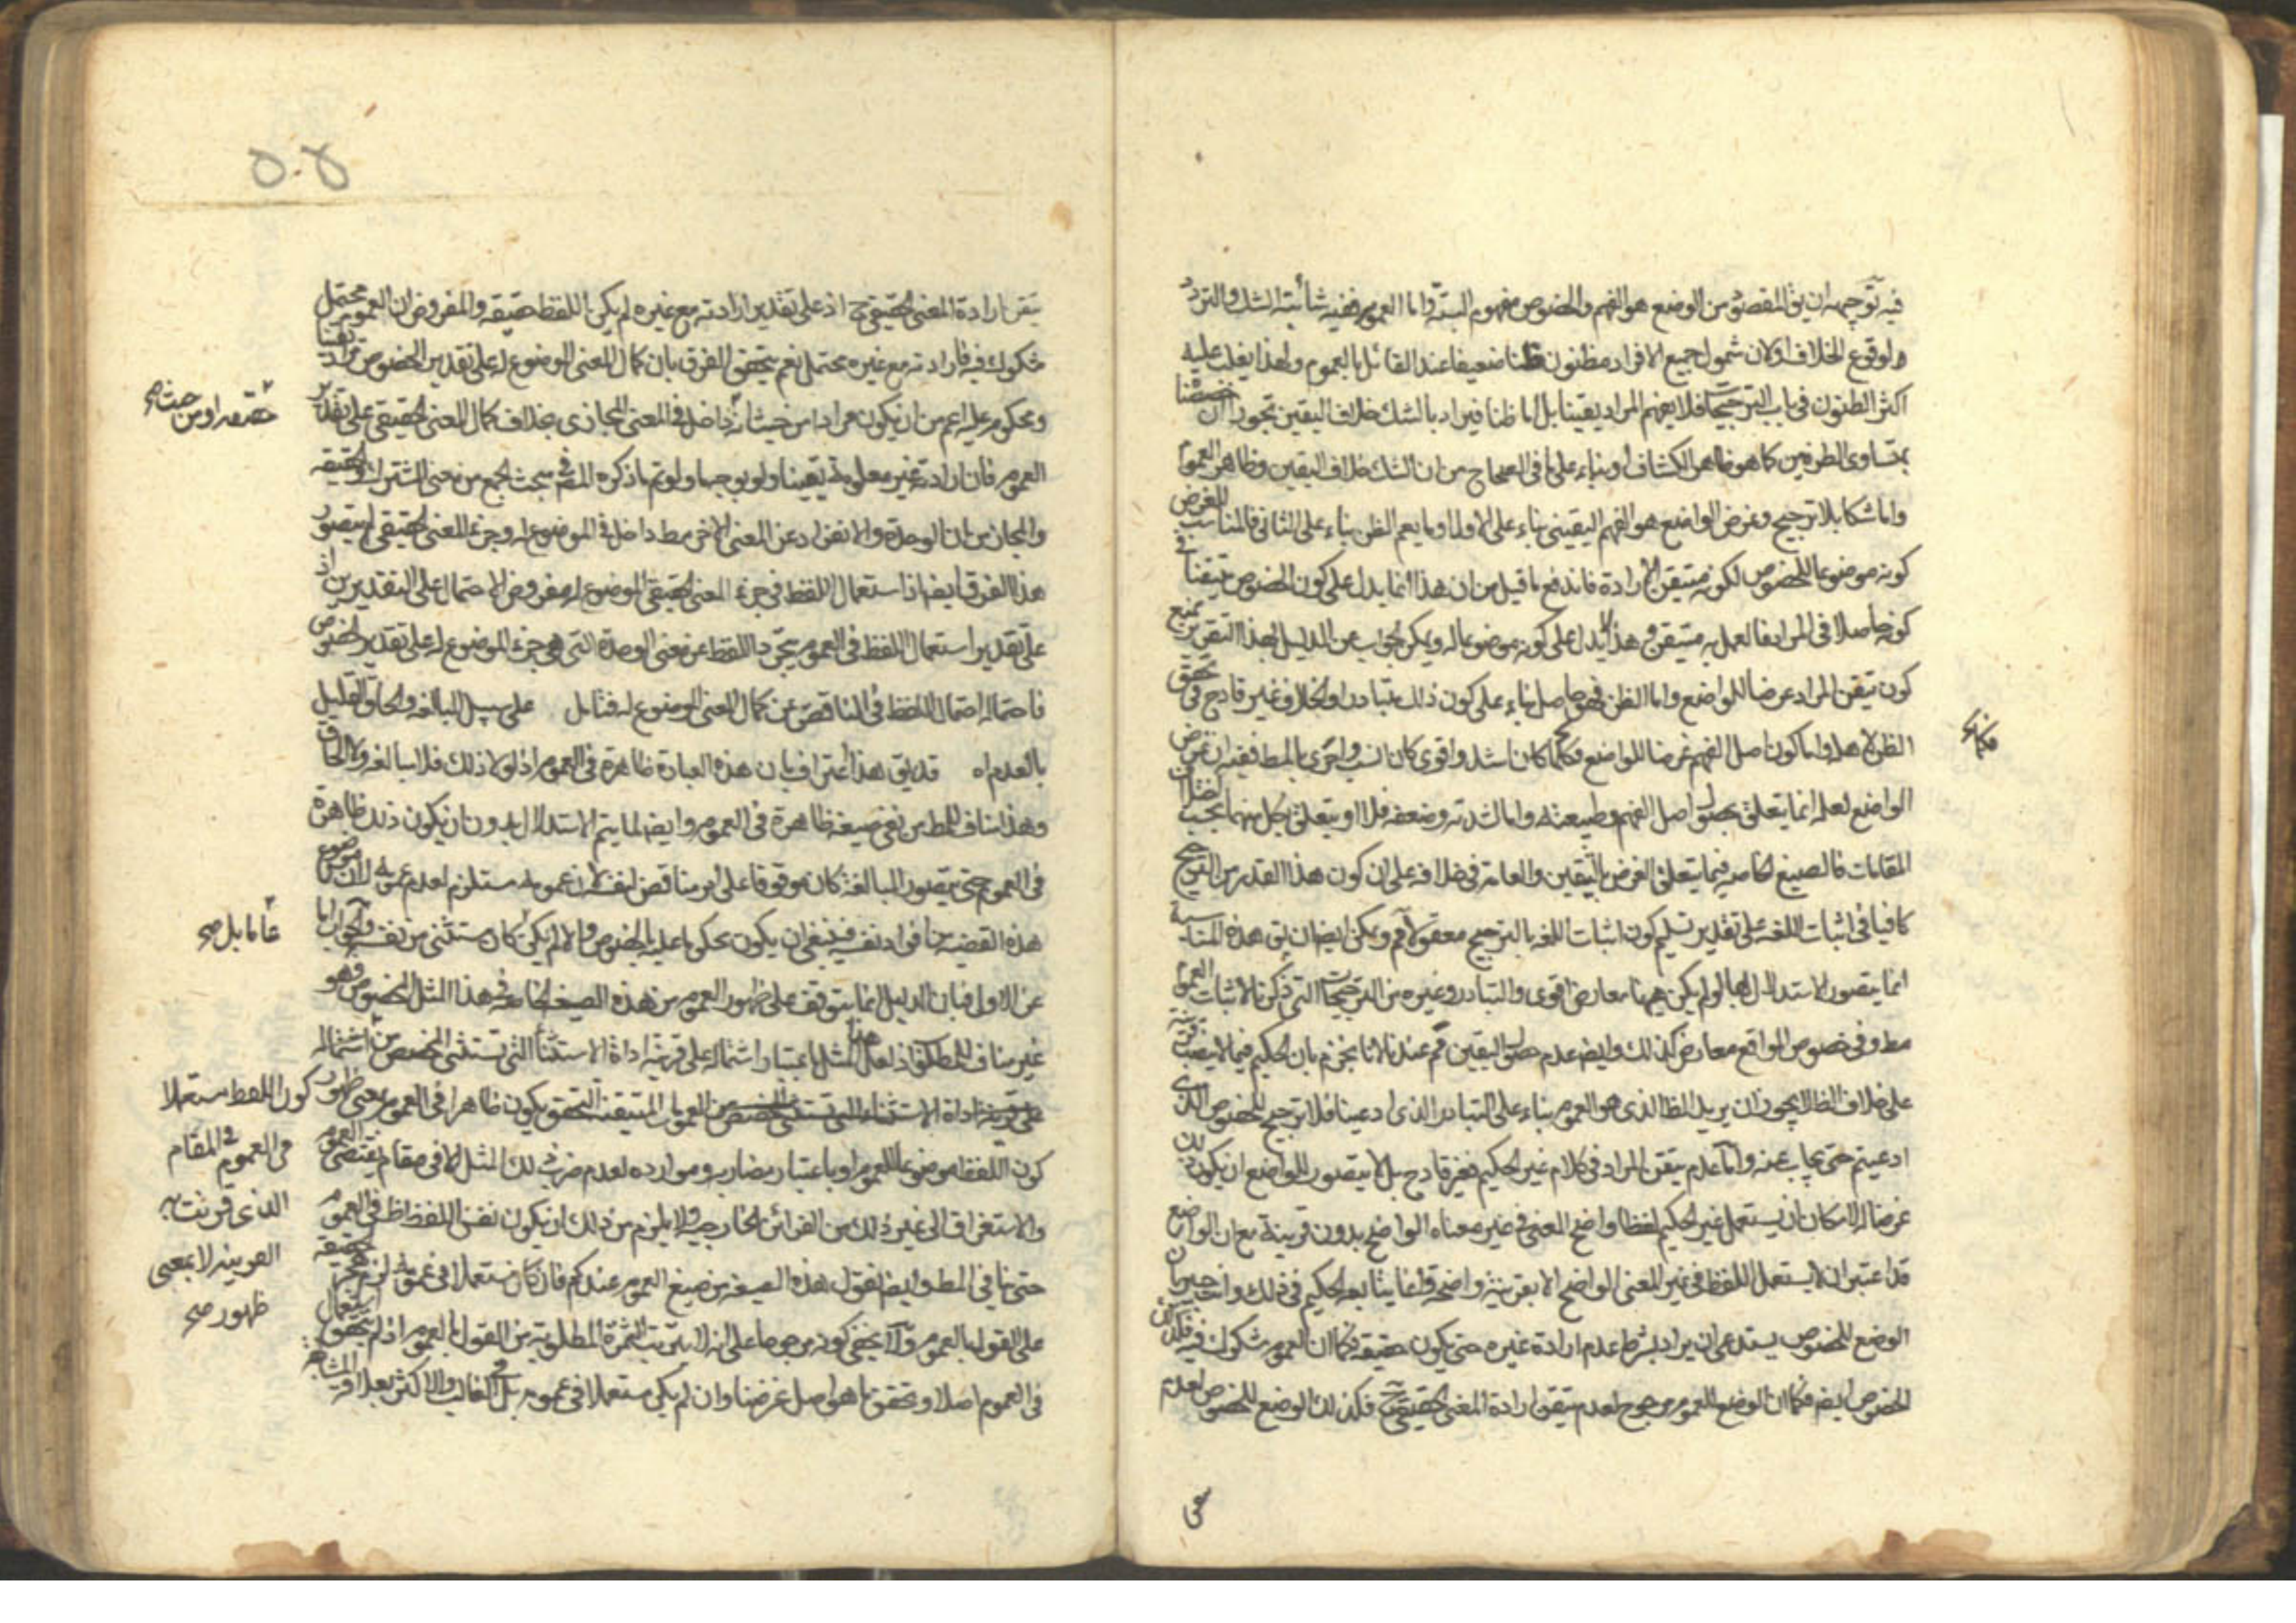 فيه توجيهه ان يق المقصود من الوضع هو الفهم والخصوص مفهوم البتة واما العموم ففيه شائبة الشك والتردد
ولوقوع الخلاف اولان شمول جميع الافراد مظنون ظنا ضعيفا عند القائل بالعموم ولهذا يغلب عليه
اكثر الظنون في باب الترجيحات فلا يفهم المراد يقينا بل اما ظنا فيراد بالشك خلاف اليقين تجوزا
بتساوى الطرفين كما هو ظاهر الكشاف او بناء على ما في الصحاح من ان الشك خلاف اليقين وظاهر العموم
واما شكا بلا ترجيح وغرض الواضع هو الفهم اليقيني بناء على الاول او ما يعم الظن بناء على الثاني فالمناسب للغرض
كونه موضوعا للخصوص لكونه متيقن الارادة فاندفع ما قيل من ان هذا انما يدل على كون الخصوص متيقنا في
كونه حاصلا في المراد فالعمل به متيقن وهذا لا يدل على كونه موضوعا له ويمكن الجواب عن الدليل بهذا التقرير بمنع
كون تيقن المراد غرضا للواضع واما الظن فهو حاصل بناء على كون ذلك متبادرا والخلاف غير قادح في تحقق
الظن لاهله واما كون اصل الفهم غرضا للواضع فكلما كان اشد واقوى كان انسب واحرى بالمط ففيه ان غرض
الواضع لعله انما يتعلق بحصول اصل الفهم وطبيعته واما لشدته وضعفه فلا او يتعلق بكل منهما بحسب
المقامات فالصيغ الخاصه فيما يتعلق الغرض باليقين والعامة في خلافه على ان كون هذا القدر من الترجيح
كافيا في اثبات اللغه على تقدير تسليم كون اثبات اللغه بالترجيح معقولا مم ويمكن ايضا ان يق هذه المناسبة
انما يتصور الاستدلال بها لو لم يكن ههنا معارض اقوى والتبادر وغيره من الترجيحات التي ذكرنا لاثبات العموم
مط وفي خصوص المواقع معارض كذلك وايضا عدم حصول اليقين مم عندنا لانا نجزم بان الحكيم فيما لا ينصب قرينه
على خلاف الظاهر لا يجوز ان يريد الا الظاهر الذى هو العموم بناء على التبادر الذى ادعينا فلا ترجيح للخصوص الذى
ادعيتم حتى يجاب عنه واما عدم تيقن المراد في كلام غير الحكيم فغير قادح بل لا يتصور للواضع ان يكون ذلك
غرضا له لامكان ان يستعمل غير الحكيم لفظا واضح المعنى في غير معناه الواضح بدون قرينة مع ان الواضع
قد اعتبر ان لا يستعمل اللفظ في غير المعنى الواضح الا بقرينة واضحة وانما يتابعه الحكيم في ذلك وانت خبير بان
الوضع للخصوص يستدعى ان يراد بشرط عدم ارادة غيره حتى يكون حقيقه فكما ان العموم مشكوك فيه فكذلك
الخصوص ايضا فكما ان الوضع للعموم مرجوح لعدم تيقن ارادة المعنى الحقيقي ح فكذلك الوضع للخصوص لعدم
٥٠٥
تيقن ارادة المعنى الحقيقي ح اذ على تقدير ارادته مع غيره لم يكن اللفظ حقيقه والمفروض ان العموم محتمل
مشكوك فيه فارادته مع غيره محتمل نعم يتحقق الفرق بان كمال المعنى الموضوع له على تقدير الخصوص مراد يقينا
ومحكوم عليه اعم من ان يكون مرادا من حيث انه داخل في المعنى المجازى بخلاف كمال المعنى الحقيقي على تقدير
العموم فان ارادته غير معلومة يقينا ولو بوجه ما ولو تم ما ذكره المص في بحث الجمع من معنى المشترك والحقيقه
والمجاز من ان الوحدة والانفراد عن المعنى الاخر مط داخل في الموضوع له وجزء للمعنى الحقيقي لم يتصور
هذا الفرق ايضا اذ استعمال اللفظ في جزء المعنى الحقيقي الموضوع له مفروض الاحتمال على التقديرين اذ
على تقدير استعمال اللفظ في العموم يجرد اللفظ عن معنى الوحدة التي هي جزء الموضوع له على تقدير الخصوص
فاحتماله احتمال اللفظ في الناقص عن كمال المعنى الموضوع له فتامل على سبيل المبالغه والحاق القليل
بالعدم اه قد يق هذا اعتراف بان هذه العبارة ظاهرة في العموم اذ لولا ذلك فلا مبالغه ولا الحاق
وهذا مناف للمط من نفي صيغه ظاهرة في العموم وايضا لما يتم الاستدلال بدون ان يكون ذلك ظاهرة
في العموم حتى يتصور المبالغة كان موقوفا على امر مناقض لنفسه لان عمومه مستلزم لعدم عمومه لان موضوع
هذه القضيه من افراد نفسه فينبغي ان يكون محكوما عليه بالخصوص والا لم يكن كان مستثنى من نفسه والجواب اما
عن الاول فبان الدليل انما يتوقف على ظهور العموم من هذه الصيغه الخاصه في هذا المثل الخصوص وهو
غير مناف للمط اذ لعل هذا المثل باعتبار اشتماله على قرينه اداة الاستثناء التي تستثنى المخصص من اشتماله
على قرينه اداة الاستثناء التي تستثنى المخصص من العموم المتيقنه التحقق يكون ظاهرا في العموم بمعنى ظهور
كون اللفظ موضوعا للعموم او باعتبار مضاربه وموارده لعدم ضرب ذلك المثل الا في مقام يقتضي العموم
والاستغراق الى غير ذلك من القرائن الخارجيه ولا يلزم من ذلك ان يكون نفس اللفظ ظاهرا في العموم
حتى ينافي المط وايضا نقول هذه الصيغه من صيغ العموم عندكم فان كان مستعملا في عمومه لزم حقيقه
على القول بالعموم ولا يخفي كونه مرجوحا على انه لا يترتب الثمرة المطلوبة من القول بالعموم اذ لم يتحقق استعمال
في العموم اصلا وتحقق ما هو اصل غرضنا وان لم يكن مستعملا في عمومه بل في الغالب والاكثر بعلاقه المشابهه
حقيقه او من حيث صح
عاما بل صح
كون اللفظ مستعملا
في العموم في المقام
الذى قرنت به
القرينه لا بمعنى
ظهور صح